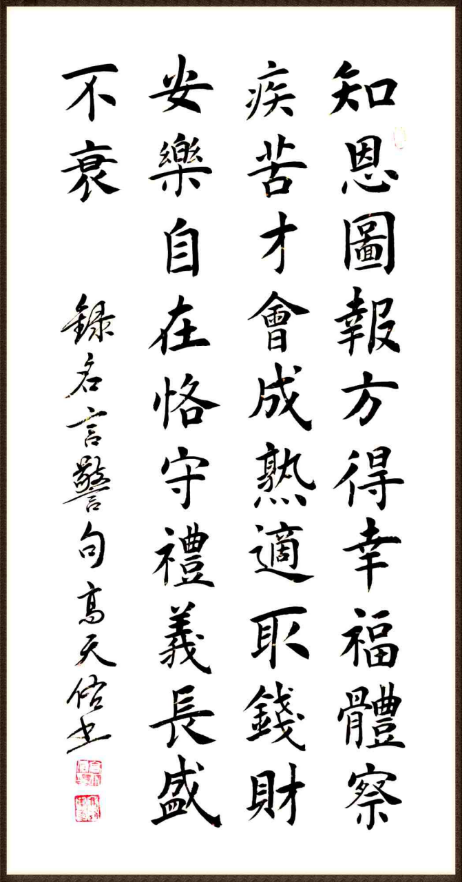 知恩圖報方得幸福體察
疾苦才會成熟適取錢財
安樂自在恪守禮義長盛
不衰
録名言警句高天佑書